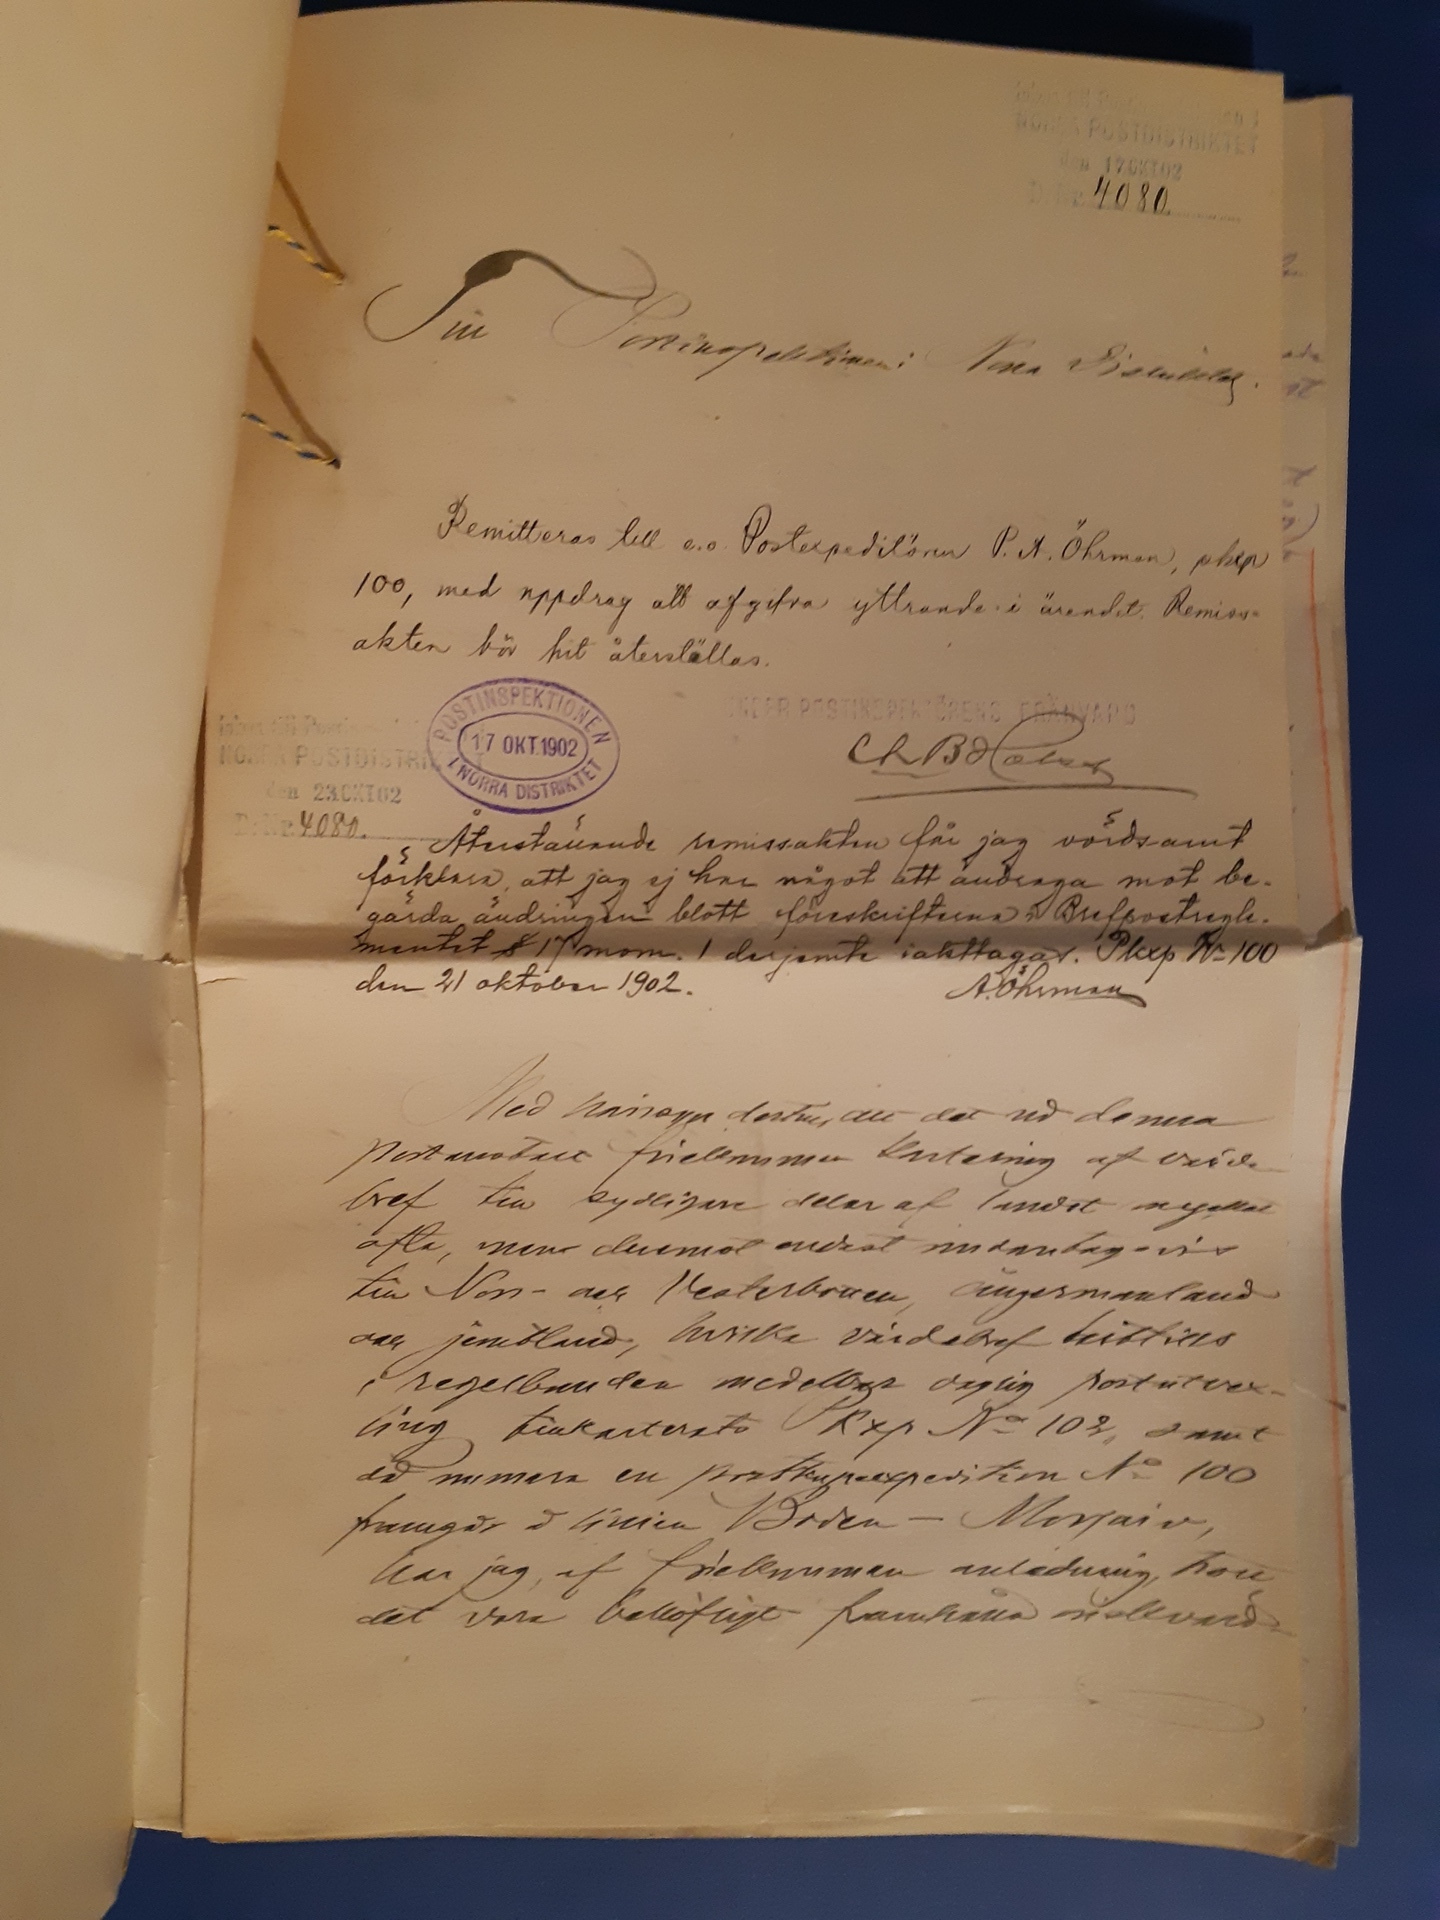 Inkom till Postinspektionen i
NORRA POSTDISTRIKTET
den 17 OKT 02
D. Nr. 4080.
Till Postinspektionen i Norra Distriktet.
Remitteras till e.o. Postexpeditören P. A. Öhrman, pkxp
100, med uppdrag att afgifva yttrande i ärendet. Remiss-
akten bör hit återställas.
POSTINSPEKTIONEN
17 OKT. 1902
I NORRA DISTRIKTET
UNDER POSTINSPEKTÖRENS FRÅNVARO
Inkom till Postinspektionen i
NORRA POSTDISTRIKTET
den 23 OKT 02
D. Nr. 4080.
Återställande remissakten får jag vördsamt
förklara, att jag ej har något att andraga mot be-
gärda ändringen blott föreskrifterna i Brefpostregle-
mentet § 17 mom. 1 derjemte iakttagas. Pkxp No 100
den 21 oktober 1902.
A. Öhrman
Med hänsyn dertill, att det vid denna
postanstalt förekommer kartering af värde-
bref till sydligare delar af landet mycket
ofta, men deremot endast undantagsvis
till Norr- och Vesterbotten, Ångermanland
och Jemtland, hvilka värdebref hittills
i regelbunden medelbar daglig postutvex-
ling tillkarterats PKxp No 102, samt
då numera en postkupéexpedition No 100
framgår å linien Boden – Morjärv,
har jag, af förekommen anledning, trott
det vara behöfligt framhålla